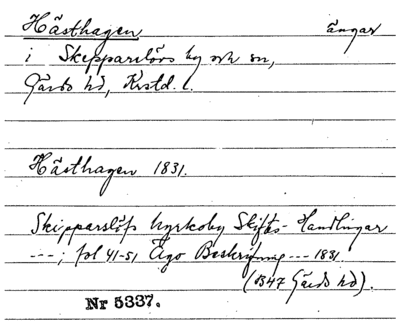 Hästhagen ängar
i Skepparslövs by och sn,
Gärds hd, Krstd. l.
Hästhagen 1831.
Skipparslöfs Kyrkoby Skiftes-Handlingar
---; fol 41-51 Ägo Beskrifning --- 1831.
(B47 Gärds hd).
Nr 5337.